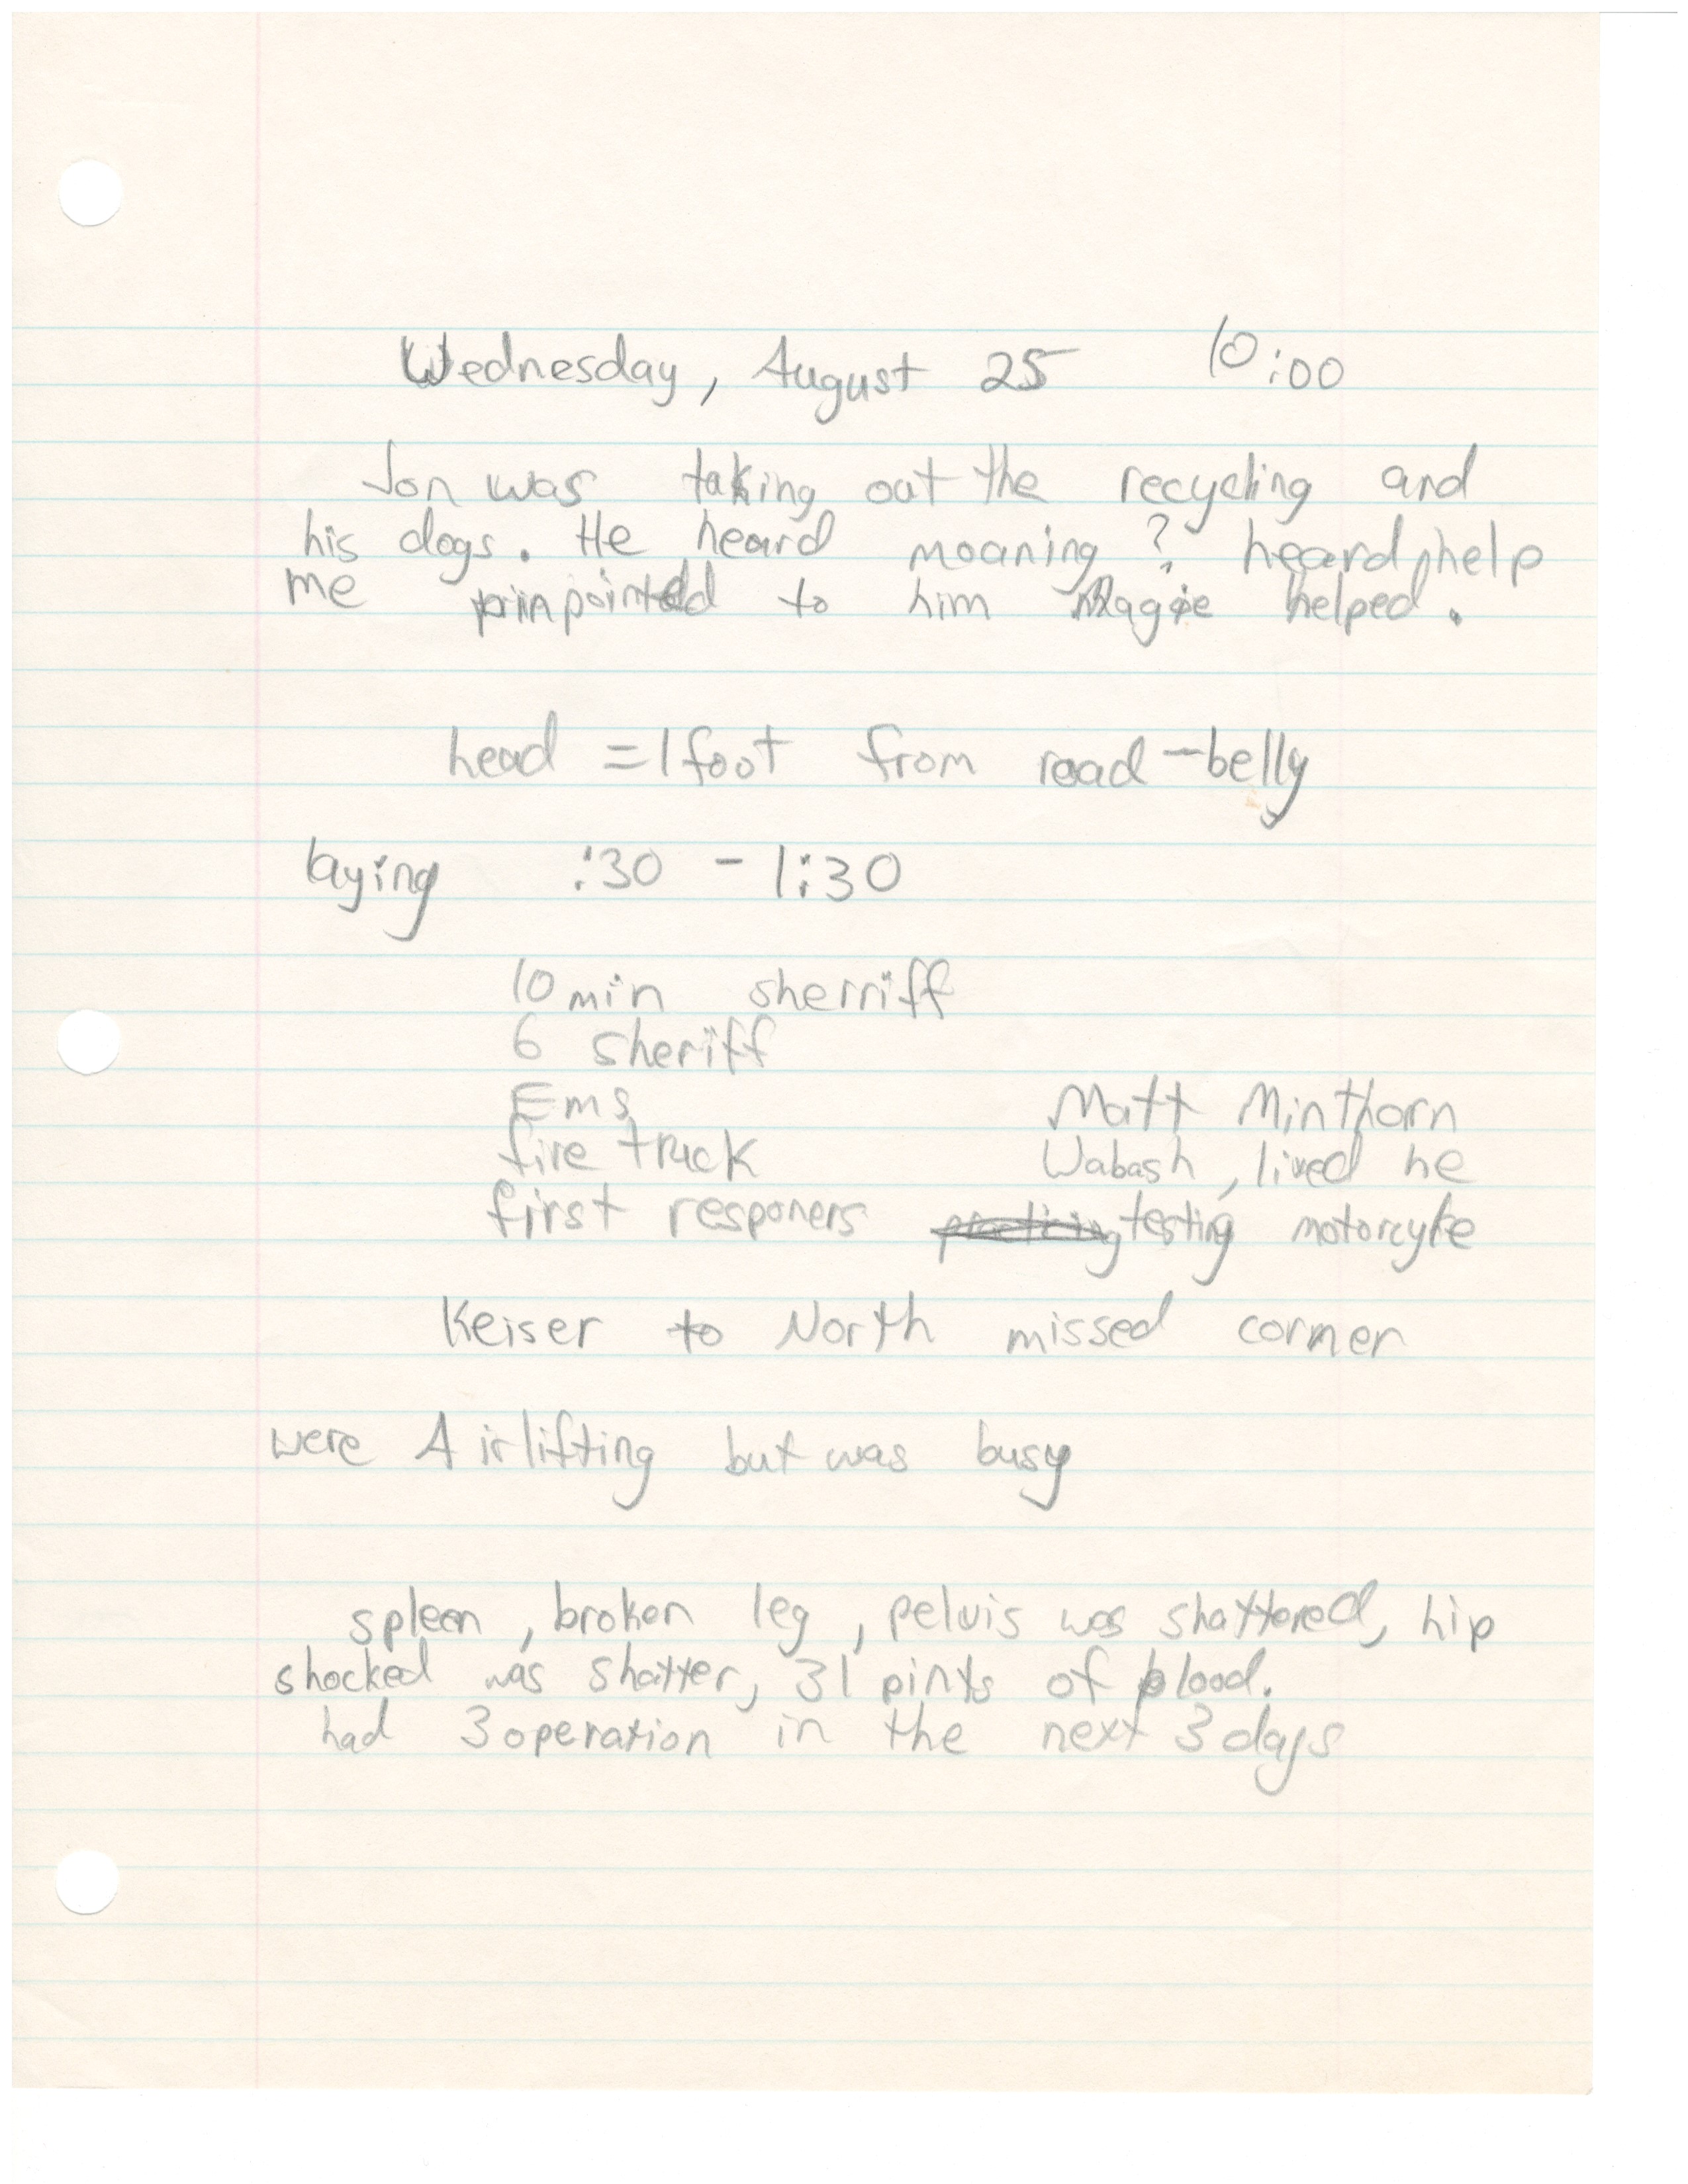 Wednesday, August 25 10:00
Jon was taking out the recycling and
his dogs. He heard moaning ? heard, help
me pinpointed to him Magie helped.
head = 1 foot from road - belly
laying :30 - 1:30
10 min sherriff
6 sheriff
Ems Matt Minthorn
fire truck Wabash, lived he
first responers testing motorcyke
Keiser to North missed corner
were Airlifting but was busy
spleen, broken leg, pelvis was shattered, hip
shocked was shatter, 31 pints of blood.
had 3 operation in the next 3 days